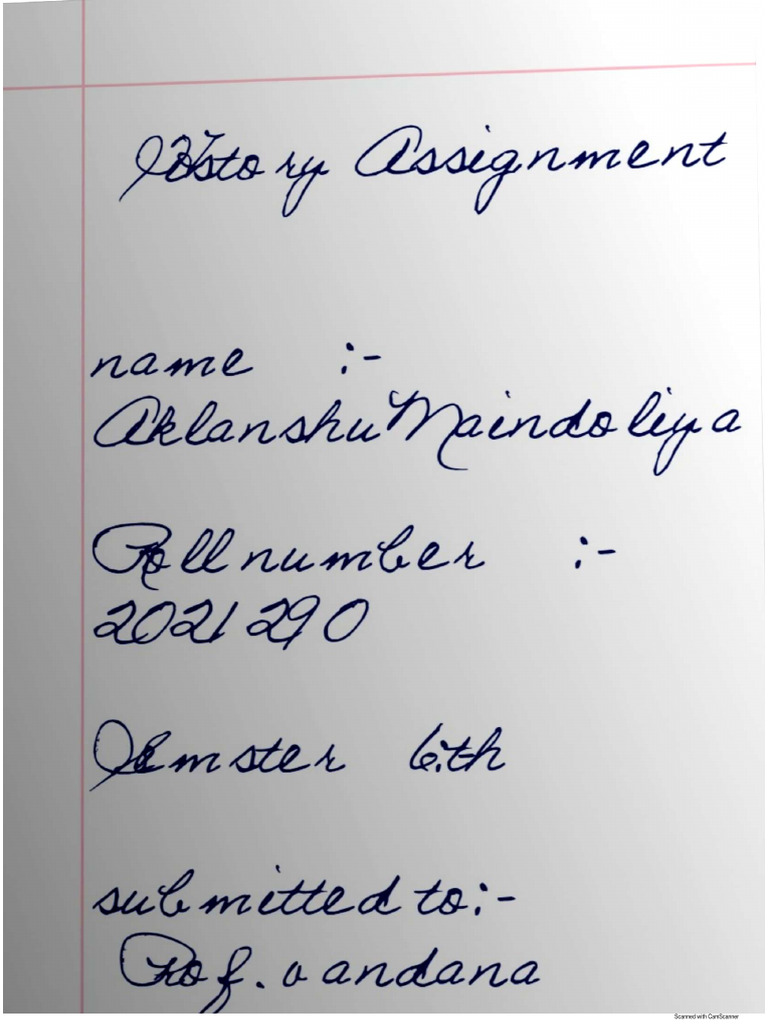 History Assignment
name :-
Aklanshu Maindoliya
Roll number :-
2021290
Semster 6th
submitted to:-
Prof. vandana
Scanned with CamScanner